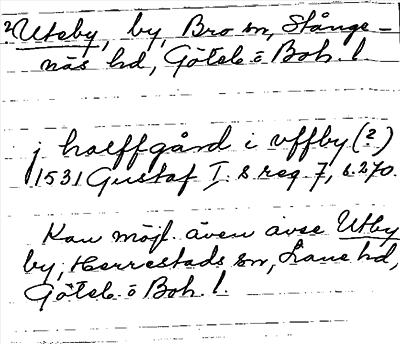 ? Utby, by, Bro sn, Stånge-
näs hd, Göteb o Boh. l.
j halffgård i uffby (?)
1531 Gustaf I:s reg. 7, s. 270.
Kan möjl. även avse Utby
by, Herrestads sn, Lane hd,
Göteb. o Boh. l.